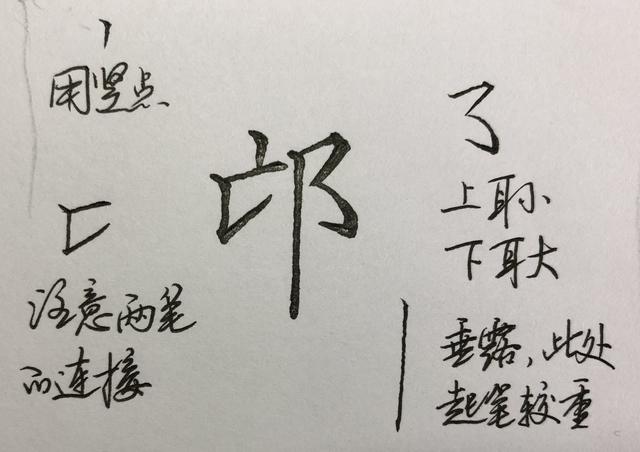 用竖点
邙
注意两笔
的连接
上耳小
下耳大
垂露,此处
起笔较重